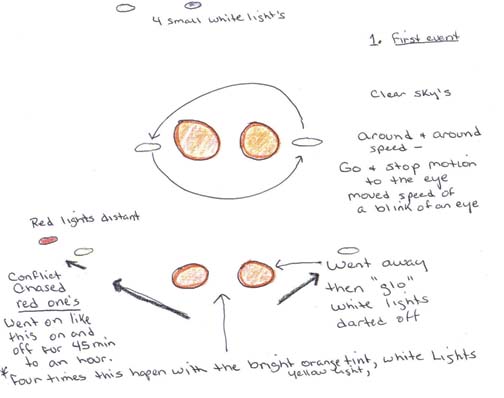 4 small white light's
1. First event
Clear sky's
around & around
speed –
Go & stop motion
to the eye
moved speed of
a blink of an eye
Red lights distant
Conflict
Chased
red one's
Went on like
this on and
off for 45 min
to an hour.
Went away
then "glo"
white lights
darted off
* Four times this hapen with the bright orange tint, white Lights
yellow light,